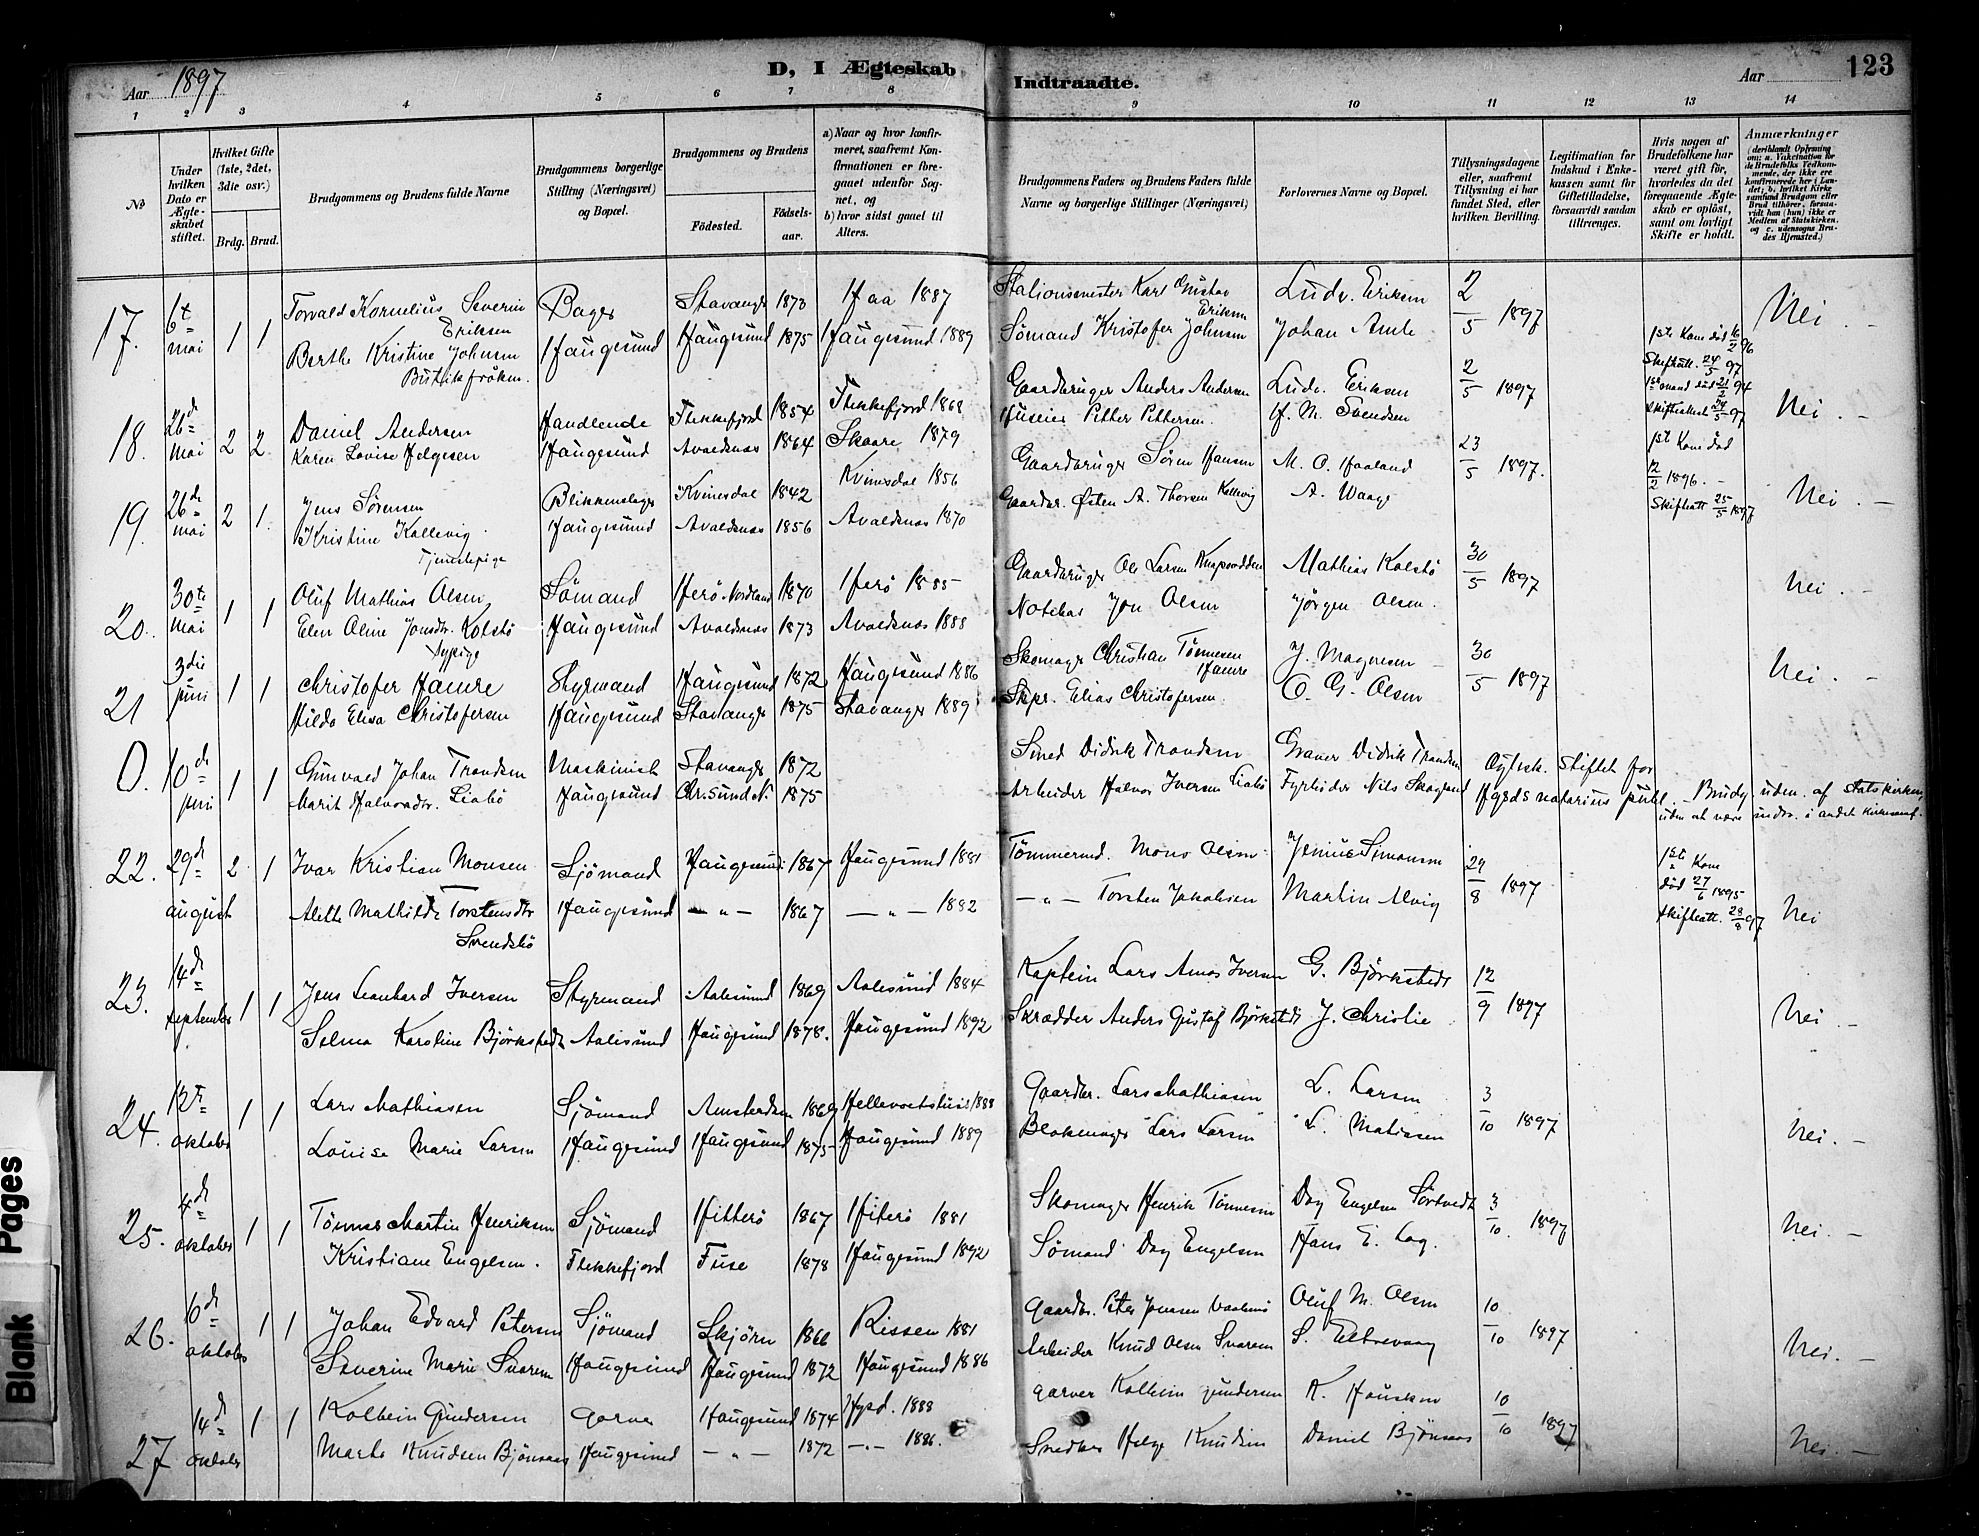 Aar 1897
D, I Ægteskab Indtraadte.
Aar 123
1 2 3 4 5 6 7 8 9 10 11 12 13 14
No
Under hvilken Dato er Ægteskabet stiftet.
Hvilket Gifte (1ste, 2det, 3die osv.)
Brdg. Brud.
Brudgommens og Brudens fulde Navne
Brudgommens borgerlige Stilling (Næringsvei) og Bopæl.
Brudgommens og Brudens
Fødested. Fødselsaar.
a) Naar og hvor konfirmeret, saafremt Konfirmationen er foregaaet udenfor Sognet, og
b) hvor sidst gaaet til Alters.
Brudgommens Faders og Brudens Faders fulde Navne og borgerlige Stillinger (Næringsvei)
Forlovernes Navne og Bopæl.
Tillysningsdagene eller, saafremt Tillysning ei har fundet Sted, efter hvilken Bevilling.
Legitimation for Indskud i Enkekassen samt for Giftetilladelse, forsaavidt saadan tiltrænges.
Hvis nogen af Brudefolkene har været gift før, hvorledes da det foregaaende Ægteskab er opløst, samt om lovligt Skifte er holdt.
Anmærkninger (deriblandt Oplysning om: a. Vakcination for de Brudefolks Vedkommende, der ikke ere konfirmerede her i Landet; b. hvilket Kirkesamfund Brudgom eller Brud tilhører, forsaavidt han (hun) ikke er Medlem af Statskirken. og c. udensogns Brudes Hjemsted.)
17. 6t mai 1 1 Torvald Kornelius Severin Eriksen Bager Stavanger 1873 Haa 1887 Stationsmester Karl Gustav Eriksen Ludv. Eriksen 2/5 1897 Nei. -
Berthe Kristine Johnsen Haugesund Haugesund 1875 Haugesund 1889 Sømand Kristofer Johnsen Johan Amle
Butikfrøken.
18. 26de mai 2 2 Daniel Andersen Handlende Flekkefjord 1854 Flekkefjord 1868 Gaardbruger Anders Andersen Ludv. Eriksen 2/5 1897 1ste Kone død 16/2 96 Skifteatt. 24/5 97 Nei. -
Karen Lovise Helgesen Haugesund Avaldsnæs 1864 Skaare 1879 Huseier Petter Pettersen. H. M. Svendsen 1ste mand død 21/2 94 Skifteatt. 24/5 97
19. 26de mai 2 1. Jens Sørensen Blikkenslager Kvinesdal 1842 Kvinesdal 1856 Gaardbruger Søren Hansen M. O. Haaland 23/5 1897. 1ste Kone død 12/2 1896. Skifteatt 25/5 1897 Nei. -
Kristine Kallevig Haugesund Avaldsnæs 1856 Avaldsnæs 1870 Gaardbr. Østen A. Thorsen Kallevig A. Waage
Tjenestepige
20. 30te mai 1 1 Oluf Mathias Olsen Sømand Herø Nordland 1870 Herø 1885 Gaardbruger Ole Larsen Mathias Kolstø 30/5 1897 Nei. -
Elen Oline Jonsdr. Kolstø Haugesund Avaldsnæs 1873 Avaldsnæs 1888 Notebas Jon Olsen Jørgen Olsen.
Sypige
21 3die juni 1 1 Christofer Hamre Styrmand Haugesund 1872 Haugesund 1886 Skomager Christian Tønnesen Hamre J. Magnesen 30/5 1897 Nei. -
Hilda Elisa Christofersen Haugesund Stavanger 1875 Stavanger 1889 Skpr. Elias Christofersen. O. G. Olsen
0. 10de juni 1 1 Gunvald Johan Trondsen Maskinist Stavanger 1872 Smed Didrik Trondsen Graver Didrik Trondsen Ægtesk. stiftet for
Marit Halvorsdr. Liabø Haugesund Chr.Sund N. 1875 Arbeider Halvor Iversen Liabø Fyrbøder Nils Skogland Hgsds notarius publ. - Brudg. uden. af Statskirken,
uden at være indtr. i andet kirkesamf.
22. 29de august 2 1 Ivar Kristian Monsen Sjømand Haugesund 1867 Haugesund 1881 Tømmermd. Mons Olsen Jemus Simonsen 29/8 1897 1ste Kone død 27/6 1895 Skifteatt. 28/8 97 Nei
Aleth Mathilde Torstensdr Svendsbø Haugesund - " - 1867 - " - 1882 - " - Torsten Jakobsen Martin Alvig
23. 14de september 1 1 Jens Leonhard Iversen Styrmand Aalesund 1869 Aalesund 1884 Kaptein Lars Amos Iversen G. Bjørkstedt 12/9 1897 Nei. -
Selma Karoline Bjørkstedt Aalesund Haugesund 1878. Haugesund 1892 Skrædder Anders Gustaf Bjørkstedt J. Christie
24. oktober 1 1 Lars Mathiasen Sjømand Amsterdam 1869 Hellevoetsluis 1888 Gaardbr. Lars Mathiasen L. Larsen 3/10 1897 Nei. -
Louise Marie Larsen Haugesund Haugesund 1875 Haugesund 1889 Blokmager Lars Larsen L. Matiasen
25. 4de oktober 1 1 Tønnes Martin Henriksen Sjømand Hitterø 1867 Hiterø 1881 Skomager Henrik Tønnesen Dag Engelsen Sørtvedt 3/10. 1897 Nei. -
Kristiane Engelsen. Flekkefjord Fuse 1878 Haugesund 1892 Sømand Dag Engelsen Hans E. Lag.
26. 6de oktober 1 1 Johan Edvard Petersen Sjømand Skjørn 1866 Rissen 1881 Gaardbr. Peter Jonasen Oluf M. Olsen 10/10 1897 Nei. -
Severine Marie Svarem Haugesund Haugesund 1872 Haugesund 1886 Arbeider Knud Olsen Svarem S. Eltrevaag
27 14de oktober 1 1 Kolbein Gundersen Garver Haugesund 1874 Hgsd. 1888 Garver Kolbein Gundersen K. Hausken 10/10 1897 Nei. -
Marta Knudsen Bjønnaas Haugesund - " - 1872 - " - 1886. Snedker Helge Knudsen Daniel Bjønnaas
Blank Pages